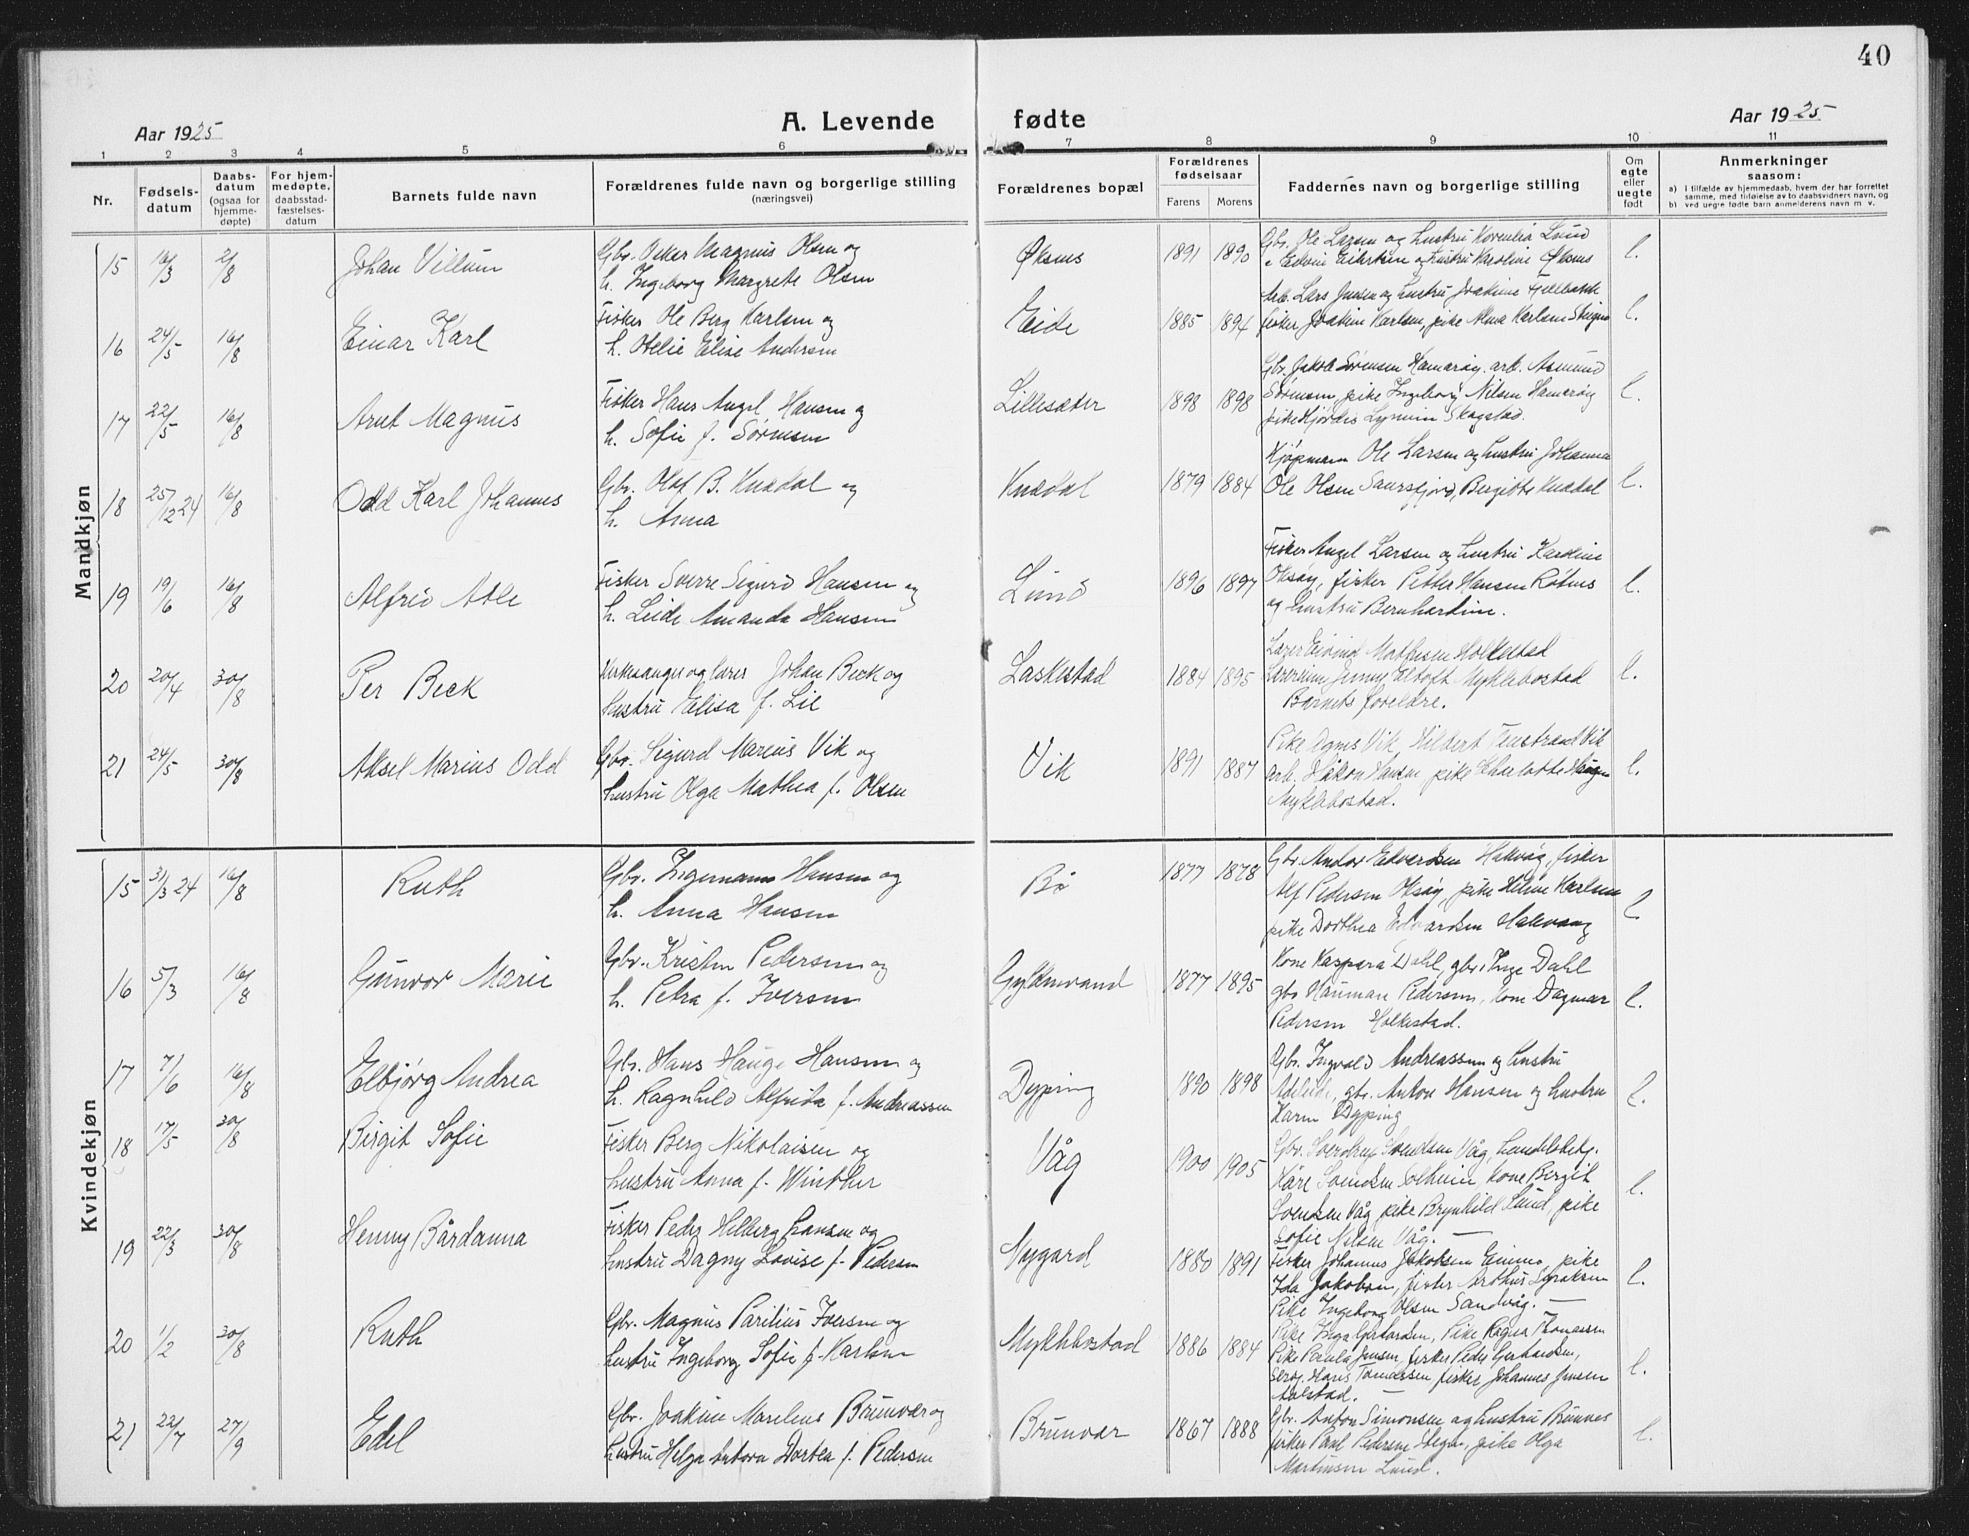 40
Aar 1925
A. Levende fødte
Aar 1925
1 2 3 4 5 6 7 8 9 10 11
Nr.
Fødsels-
datum
Daabs-
datum
(ogsaa for
hjemme-
døpte)
For hjem-
medøpte,
daabsstad-
fæstelses-
datum
Barnets fulde navn
Forældrenes fulde navn og borgerlige stilling
(næringsvei)
Forældrenes bopæl
Forældrenes
fødselsaar
Farens Morens
Faddernes navn og borgerlige stilling
Om
egte
eller
uegte
født
Anmerkninger
saasom:
a) i tilfælde av hjemmedaab, hvem der har forrettet
samme, med tilføielse av to daabsvidners navn, og
b) ved uegte fødte barn anmelderens navn m. v.
Mandkjøn
15 16/3 2/8 Johan Villum
Gbr. Osker Magnus Olsen og
h. Ingeborg Margrete Olsen
Øksnes 1891 1890
Gbr. Ole Larsen og hustru Kornelia Lund
Edvin Eilertsen og hustru Karoline Øksnes
l.
16 24/5 16/8 Einar Karl
Fisker Ole Berg Karlsen og
h. Otelie Elise Andersen
Eide 1885 1894
Arb. Lars Jensen og hustru Joakine
fisker Joakim Karlsen, pike Alma Karlsen
l.
17 22/5 16/8 Arnt Magnus
Fisker Hans Angel Hansen og
h. Sofie f. Sørensen
Lillesæter 1898 1898
Gbr. Jakob Sørensen Hamarøy, arb. Asmund
Sørensen, pike Ingeborg Nilsen Hamarøy
pike Hjørdis Skogstad.
l.
18 25/12 24 16/8 Odd Karl Johannes
Gbr. Olaf B. Knædal og
h. Anna
Knædal 1879 1884
Kjøpmann Ole Larsen og hustru Johanna
Ole Olsen Saursfjord, Bergitte Knædal
l.
19 19/6 16/8 Alfred Atle
Fisker Sverre Sigurd Hansen og
h. Leide Amanda Hansen
Lund 1896 1897
Fisker Angel Larsen og hustru Karoline
Oksøy, fisker Petter Hansen Røtnes
og hustru Bernhardine.
l.
20 20/4 30/8 Per Beck
Kirkesanger og lærer Johan Beck og
hustru Elisa f. Lie
Laskestad 1884 1895
Lærer Eivind Mathisen Holkestad
Lærerinne Jenny Eltoft Myklebostad
Barnets foreldre.
l.
21 24/5 30/8 Aksel Marius Odd
Gbr. Sigurd Marius Vik og
hustru Olga Mathea f. Olsen
Vik 1891 1887
Pike Agnes Vik, Hilbert Tenstrand Vik
arb. Håkon Hansen pike Charlotte Haugen
Myklebostad.
l.
Kvindekjøn
15 31/3 24 16/8 Ruth
Gbr. Ingemann Hansen og
h. Anna Hansen
Bø 1877 1878
Gbr. Andor Edvardsen Hakvåg, fisker
Alf Pedersen Oksøy, pike Helene Karlsen
pike Dorthea Edvardsen Hakvaag
l.
16 5/3 16/8 Gunvor Marie
Gbr. Kristen Pedersen og
h. Petra f. Iversen
Gyldenvand 1877 1895
Kone Kaspara Dahl, gbr. Inge Dahl
gbr. Hauman Pedersen, kone Dagmar
Pedersen Holkestad.
l.
17 7/6 16/8 Elbjørg Andrea
Gbr. Hans Hauge Hansen og
h. Ragnhild Alfrida f. Andreassen
Dypping 1890 1898
Gbr. Ingvald Andreassen og hustru
Adelide, gbr. Anton Hansen og hustru
Karen Dypping
l.
18 17/5 30/8 Birgit Sofie
Fisker Berg Nikolaisen og
hustru Anna f. Winther
Våg 1900 1905
Gbr. Sverdrup Svendsen Våg, handelsbetj.
Kåre Svendsen Solheim, kone Bergit
Svendsen Våg, pike Brynhild Lund, pike
Sofie Nilsen Våg. —
l.
19 22/3 30/8 Henny Bårdanna
Fisker Peder Hilberg Hansen og
hustru Dagny Lovise f. Pedersen
Nygard 1880 1891
Fisker Johannes Jakobsen pike
Ida Jakobsen, fisker Arthur
Pike Ingeborg Olsen Sandvåg. —
l.
20 1/2 30/8 Ruth
Gbr. Magnus Parilius Iversen og
hustru Ingeborg Sofie f. Karlsen
Myklebostad 1886 1884
Pike Inga Gerhardsen, Pike Ragna Thomassen
Pike Paula Jensen, fisker Peder Gerhardsen,
Hans Tomassen fisker Johannes Jensen
Aalstad. —
l.
21 22/7 27/9 Edel
Gbr. Joakim Marelius Brunvær og
hustru Helga Antora Dortea f. Pedersen
Brunvær 1867 1888
Gbr. Anton Simonsen og hustru Brunnes
fisker Paul Pedersen pike Olga
Martinsen Lund.
l.